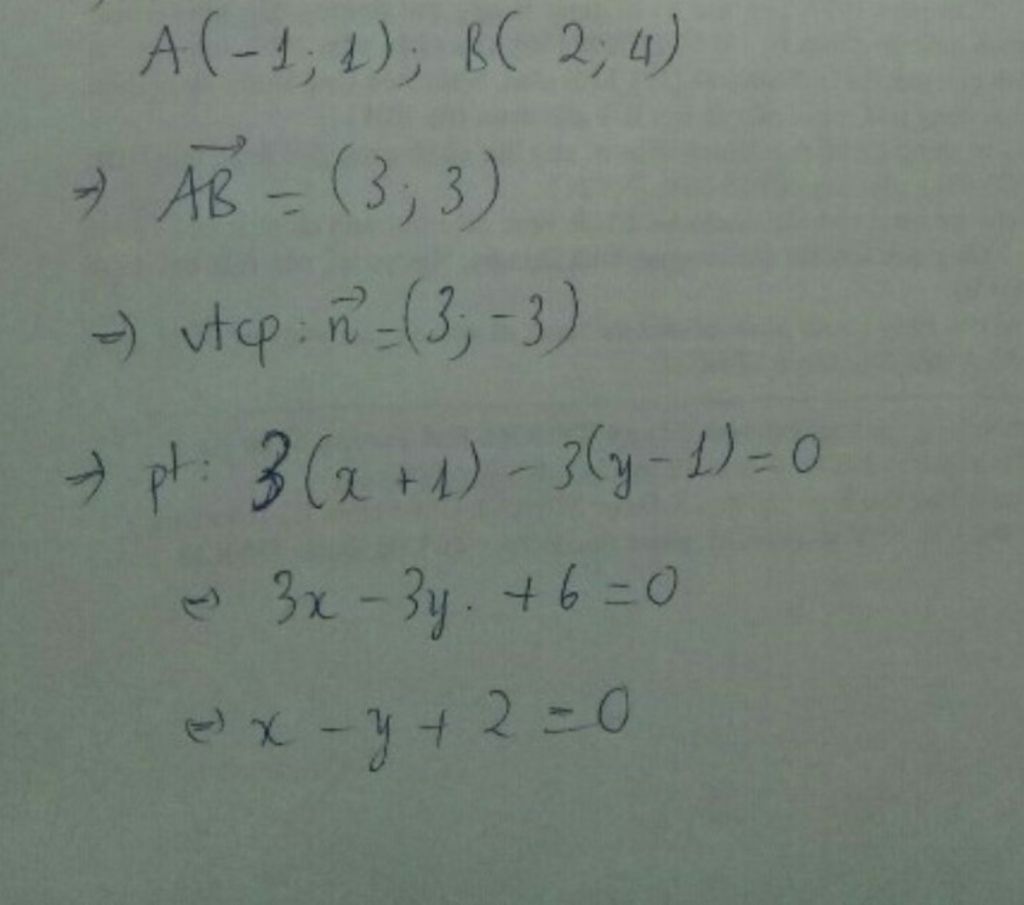 A(-1; 1); B( 2; 4)
=> \overrightarrow{AB} = (3; 3)
=> vtcp: \vec{n} = (3; -3)
=> pt: 3(x + 1) - 3(y - 1) = 0
<=> 3x - 3y. + 6 = 0
<=> x - y + 2 = 0